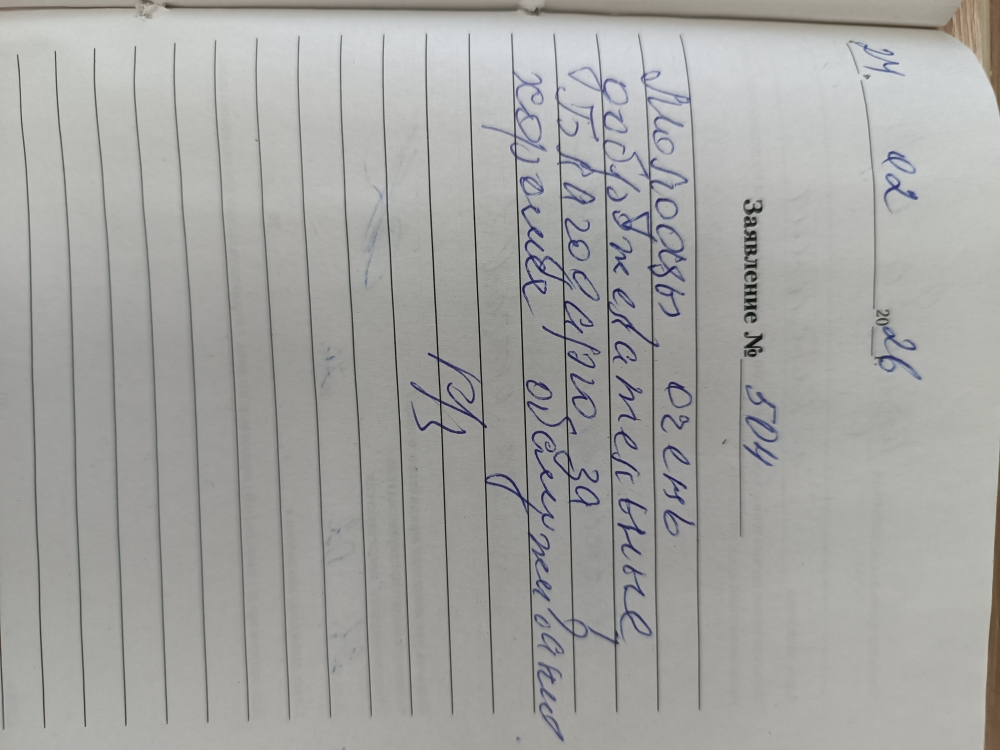 24. 02 2026
Заявление № 504
Молодцы очень
обоятельные
Благодарю за
хорошее обслуживание